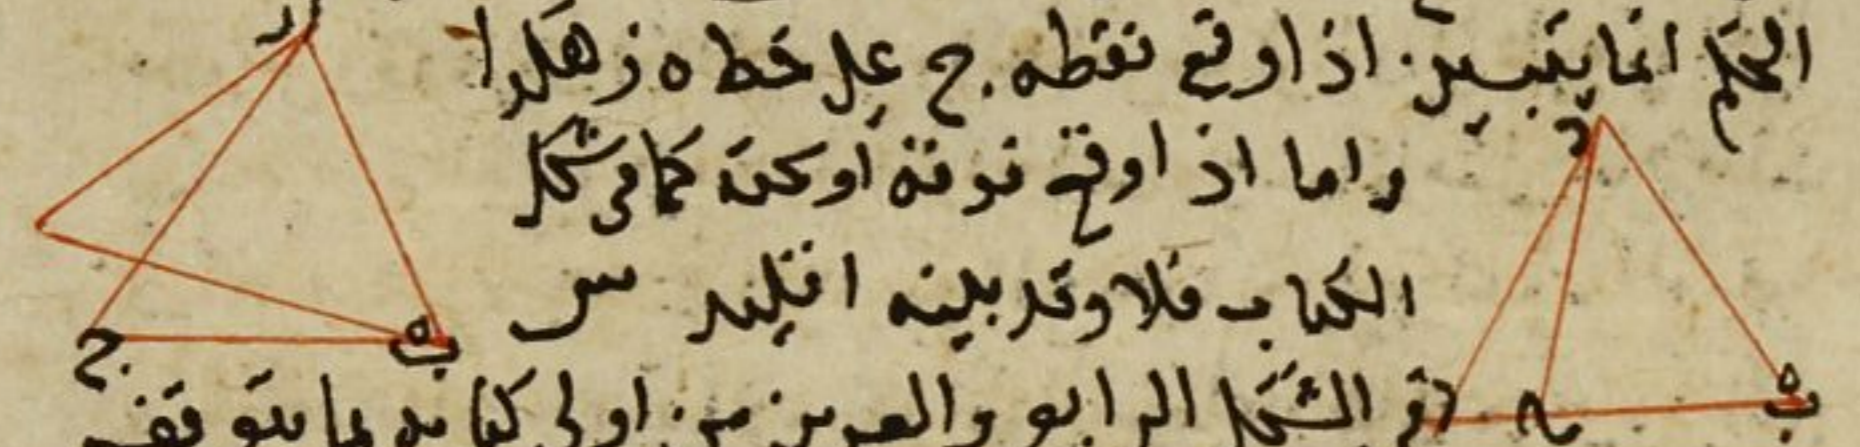 الحكم انما يتبين اذا وقع نقطه ج على خط ه ز هكذا
واما اذا وقع فوقه او تحته كما فى شكل
الكتاب فلا وقد بينه اقليدس
فى الشكل الرابع والعشرين من اولى كتابه بما يتوقف
د
ه
ب
ج
ه
ب
ج